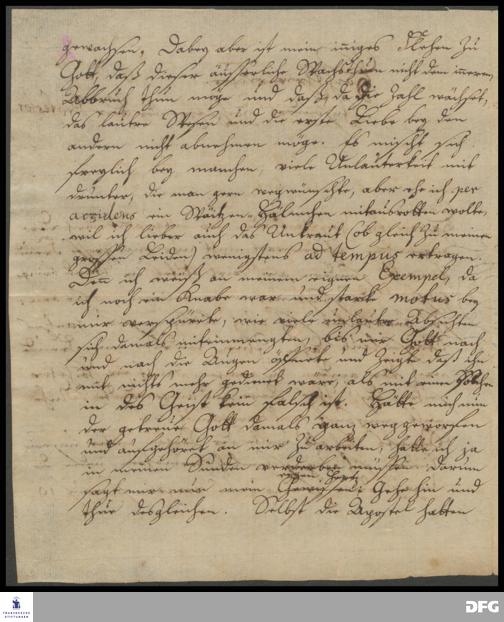 gewachsen. Dabey aber ist mein inniges Flehen zu
Gott, daß dieser äusserliche Wachsthum nicht dem inneren
Abbruch thun möge und daß, da die Zahl wächset,
das lautre Wesen und die erste Liebe bey den
andern nicht abnehmen möge. Es mischt sich
freylich bey manchen, viele Unlauterkeit mit
drunter, die man gern wegwünschte, aber ehe ich per
accidens ein Waitzen-Hälmchen mitausrotten wolte,
wil ich lieber auch das Unkraut (ob gleich zu meinem
grossen Leiden) wenigstens ad tempus ertragen.
Denn ich weiß an meinem eignen Exempel, da
ich noch ein Knabe war und starke motus bey
mir verspürete, wie viele unlautre Absichten
sich damals miteinmengten, bis mir Gott nach
und nach die Augen öffnete und zeigte daß ihm
mit nichts mehr gedient wäre, als mit einer Seelen
in des Geist kein falsch ist. Hätte mich nun
der getreue Gott damals ganz weggeworfen
und aufgehöret an mir zu arbeiten, hätte ich ja
in meinen Sünden verderben müssen. Darum
sagt mir nun mein Gewissen: Gehe hin und
mein Hertz
thue desgleichen. Selbst die Apostel hatten
FRANCKESCHE
STIFTUNGEN
DFG